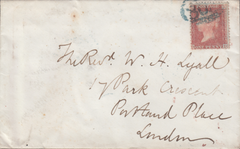 The Revd. W. H. Lyall
17 Park Crescent
Portland Place
London